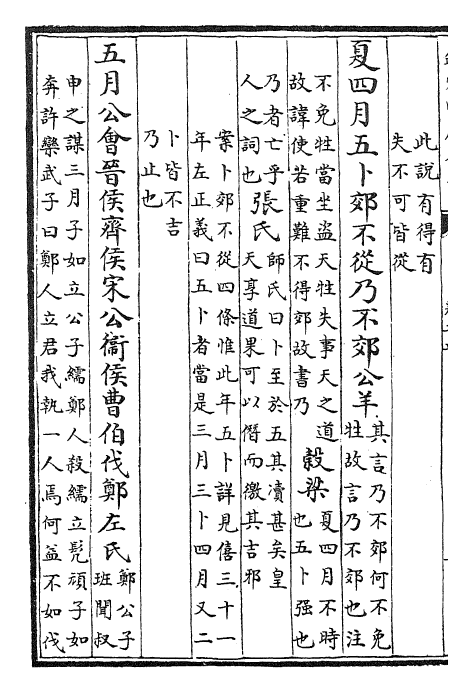 此說有得有
失不可皆從
夏四月五卜郊不從乃不郊公羊
其言乃不郊何不免
牲故言乃不郊也注
不免牲當坐盜天牲失事天之道
故諱使若重難不得郊故書乃
穀梁
夏四月不時
也五卜强也
乃者亡乎
人之詞也
張氏
師氏曰卜至於五其瀆甚矣皇
天享道果可以僭而徼其吉邪
案卜郊不從四條惟此年五卜詳見僖三十一
年左正義曰五卜者當是三月三卜四月又二
卜皆不吉
乃止也
五月公會晉侯齊侯宋公衞侯曹伯伐鄭左氏
鄭公子
班聞叔
申之謀三月子如立公子繻鄭人殺繻立髡頑子如
奔許欒武子曰鄭人立君我執一人焉何益不如伐